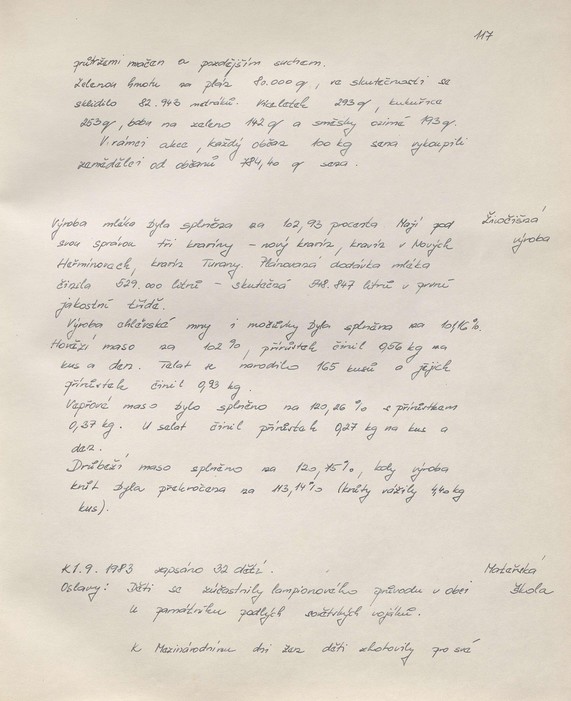 117
průtržemi mračen a pozdějším suchem.
Zelenou hmotu na plán 80.000 q, ve skutečnosti se
sklidilo 82.943 metráků. Vikoletek 293 q, kukuřice
253 q, bobu na zeleno 142 q a směsky ozimé 193 q.
V rámci akce, každý občan 100 kg sena vykoupili
zemědělci od občanů 784,40 q sena.
Výroba mléka byla splněna na 102,93 procenta. Mají pod
Živočišná
svou správou tři kravíny – nový kravín, kravín v Nových
výroba
Heřminovech, kravín Turany. Plánovaná dodávka mléka
činila 529.000 litrů – skutečná 548.847 litrů v první
jakostní třídě.
Výroba chlévské mrvy i močůvky byla splněna na 101,16%.
Hovězí maso na 102%, přírůstek činil 0,56 kg na
kus a den. Telat se narodilo 165 kusů a jejich
přírůstek činil 0,93 kg.
Vepřové maso bylo splněno na 120,26% s přírůstkem
0,37 kg. U selat činil přírůstek 0,27 kg na kus a
den.
Drůbeží maso splněno na 120,75%, kdy výroba
krůt byla překročena na 113,14% (krůty vážily 4,40 kg
kus).
K 1.9. 1983 zapsáno 32 dětí.
Mateřská
Oslavy: Děti se zúčastnily lampionového průvodu v obci
škola
u památníku padlých sovětských vojáků.
K Mezinárodnímu dni žen děti zhotovily pro své